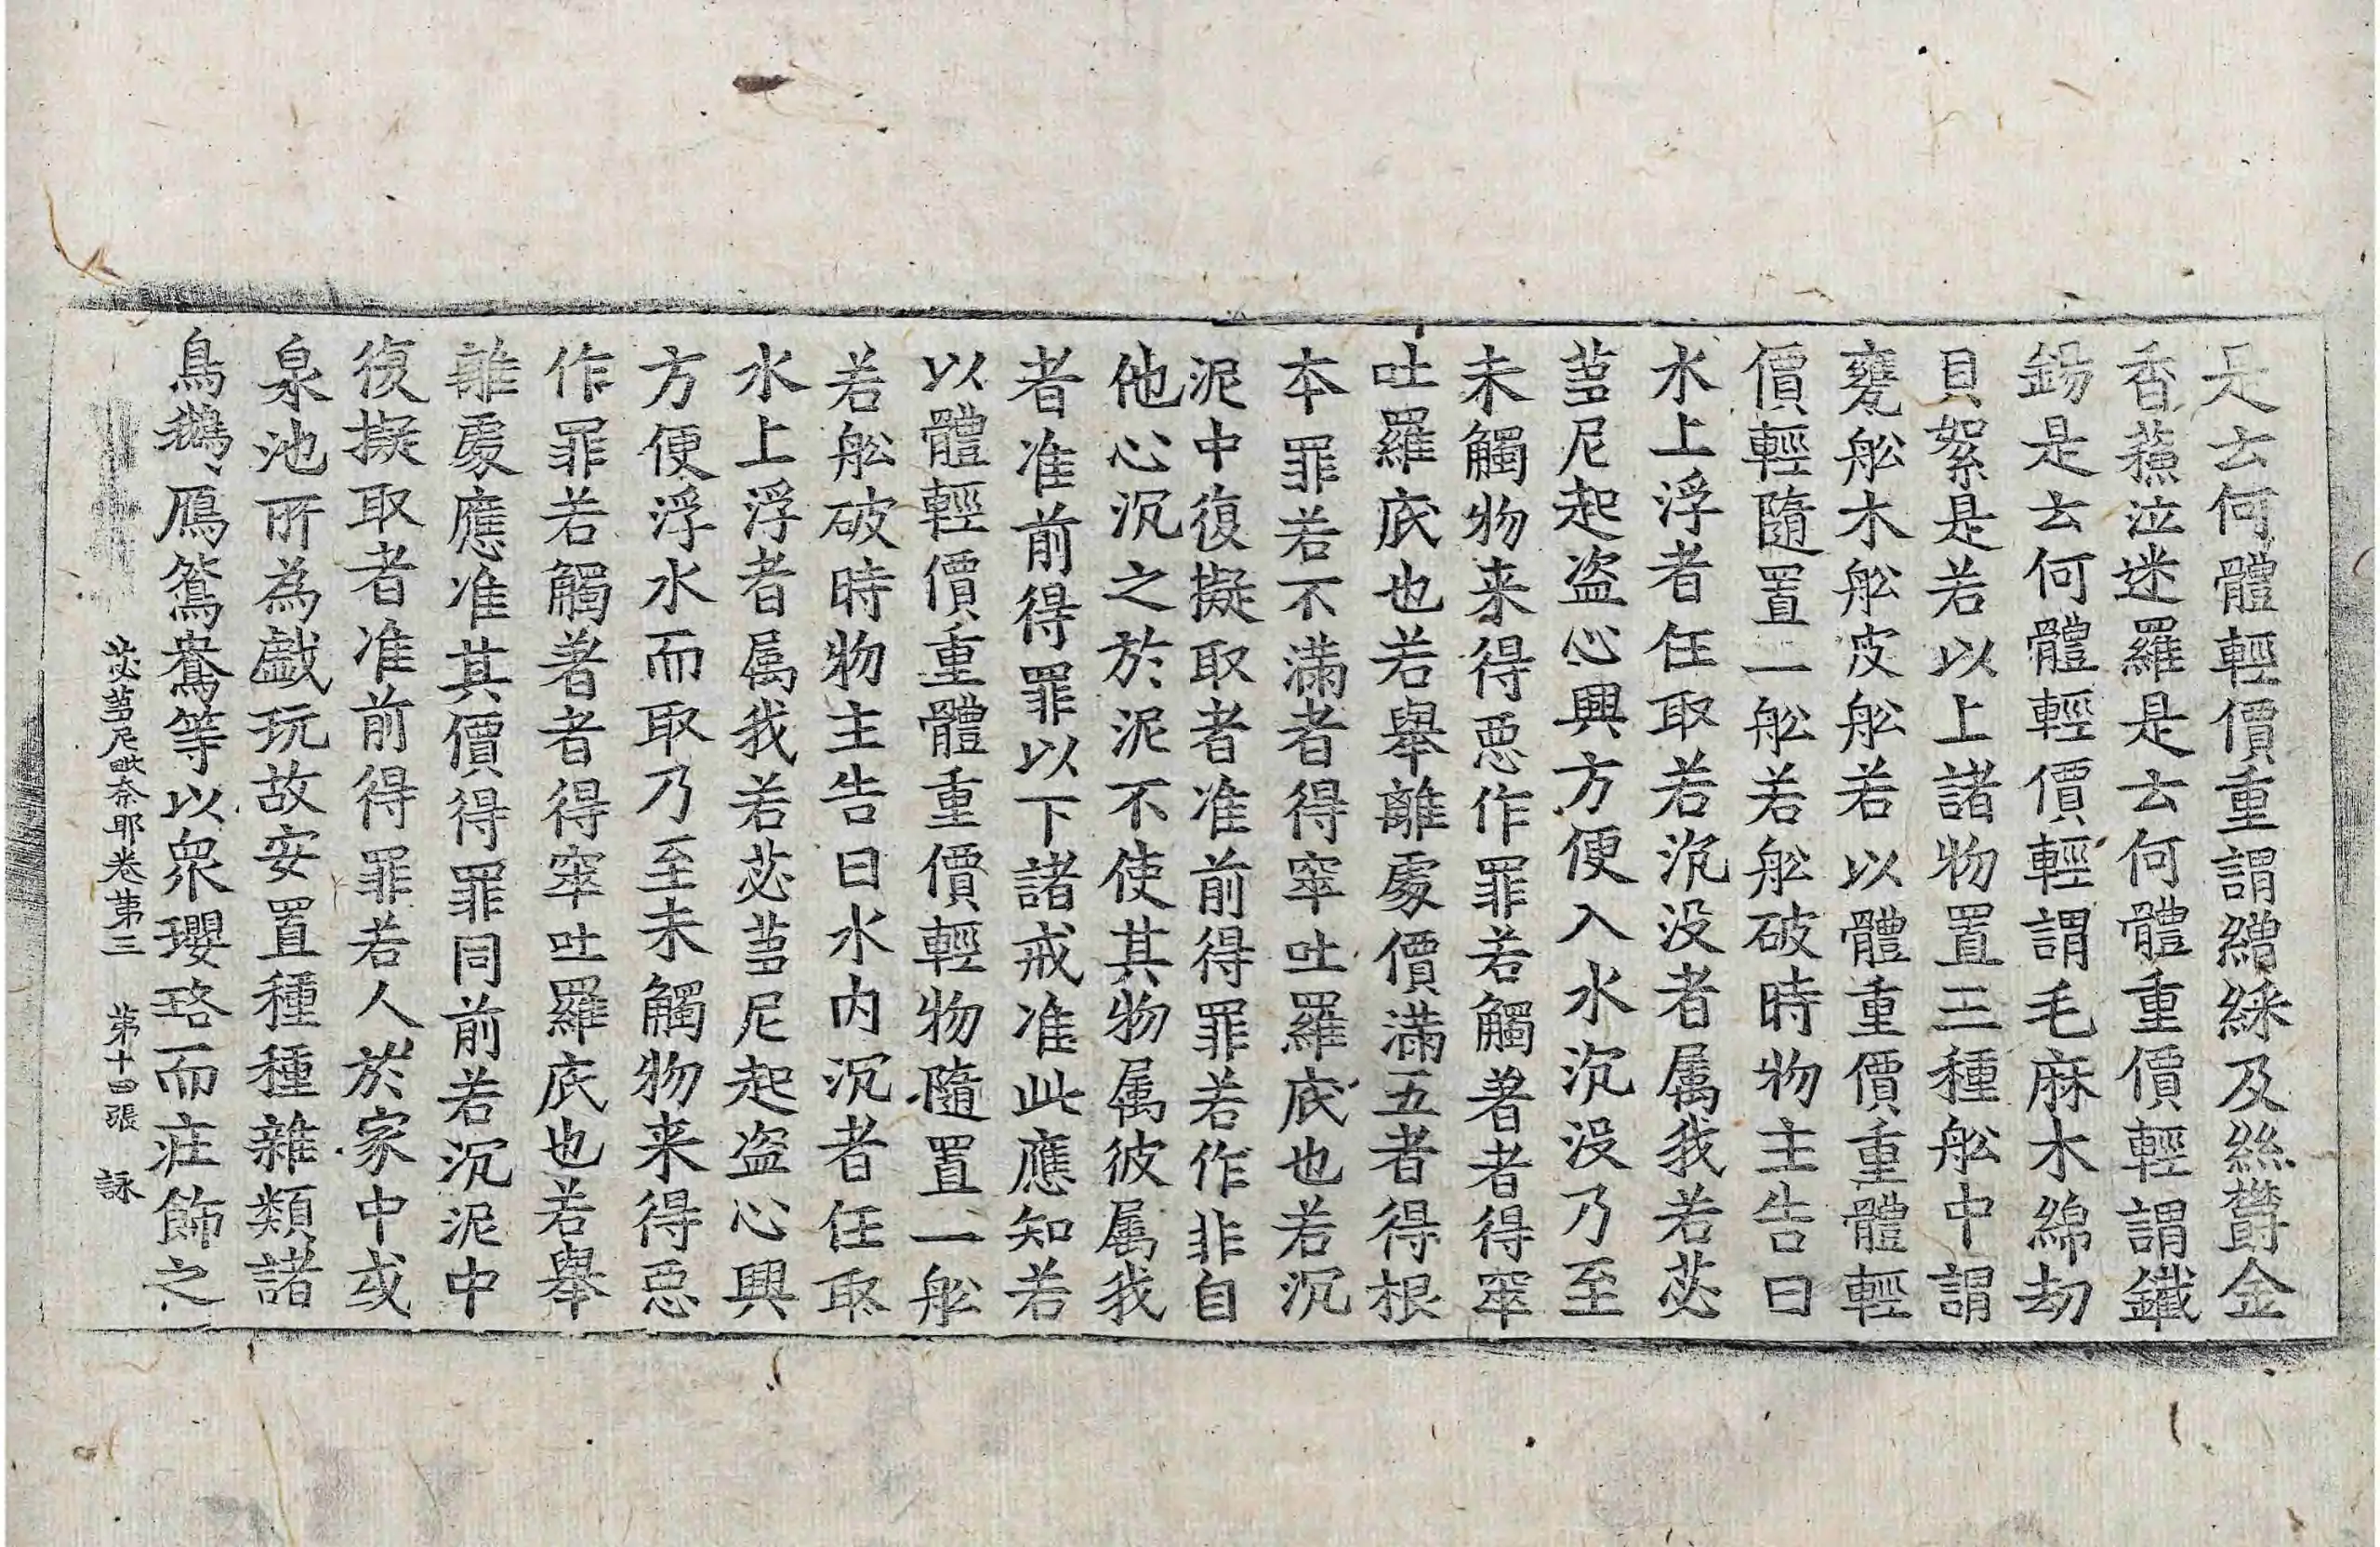 是去何體輕價重謂繒綵及絲欝金
香蘓泣迷羅是去何體重價輕謂鐵
錫是去何體輕價輕謂毛麻木綿劫
貝絮是若以上諸物置三種舩中謂
甕舩木舩皮舩若以體重價重體輕
價輕隨置一舩若舩破時物主告曰
水上浮者任取若沉没者属我若苾
蒭尼起盗心興方便入水沉没乃至
未觸物来得惡作罪若觸著者得窣
吐羅底也若舉離處價滿五者得根
本罪若不滿者得窣吐羅底也若沉
泥中復擬取者准前得罪若作非自
他心沉之於泥不使其物属彼属我
者准前得罪以下諸戒准此應知若
以體輕價重體重價輕物隨置一舩
若舩破時物主告曰水内沉者任取
水上浮者属我若苾蒭尼起盗心興
方便浮水而取乃至未觸物来得惡
作罪若觸著者得窣吐羅底也若舉
離處應准其價得罪同前若沉泥中
復擬取者准前得罪若人於家中或
泉池所為戱玩故安置種種雜類諸
鳥鵝鴈鴛鴦等以衆瓔珞而莊飾之
苾蒭尼毗奈耶卷第三 第十四張 詠